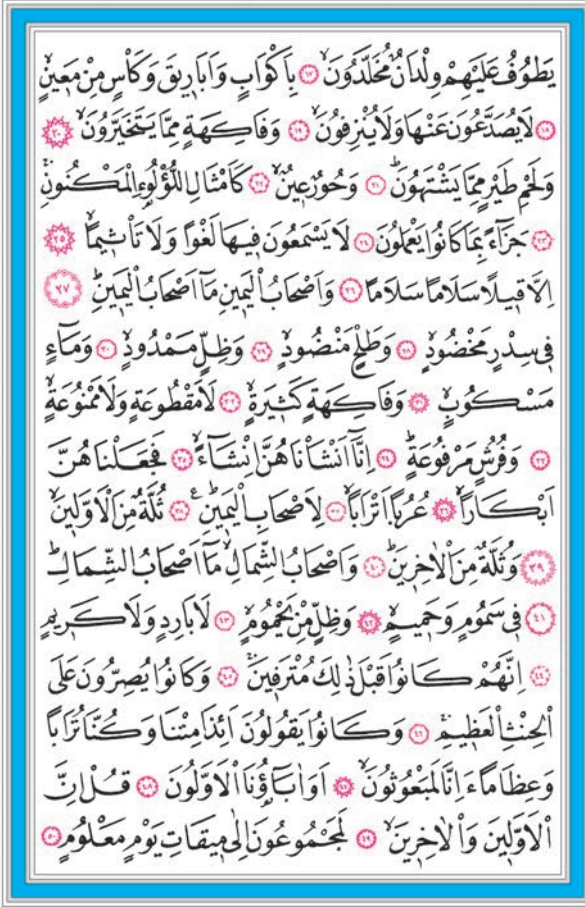 يَطُوفُ عَلَيْهِمْ وِلْدَانٌ مُخَلَّدُونَۙ ١٧ بِاَكْوَابٍ وَاَبَار۪يقَ وَكَأْسٍ مِنْ مَع۪ينٍۙ
١٨ لَا يُصَدَّعُونَ عَنْهَا وَلَا يُنْزِفُونَۙ ١٩ وَفَاكِهَةٍ مِمَّا يَتَخَيَّرُونَۙ ٢٠
وَلَحْمِ طَيْرٍ مِمَّا يَشْتَهُونَۜ ٢١ وَحُورٌ ع۪ينٌۙ ٢٢ كَاَمْثَالِ اللُّؤْلُؤِ۬ الْمَكْنُونِۚ
٢٣ جَزَٓاءً بِمَا كَانُوا يَعْمَلُونَ ٢٤ لَا يَسْمَعُونَ ف۪يهَا لَغْوًا وَلَا تَأْث۪يمًاۙ ٢٥
اِلَّا ق۪يلًا سَلَامًا سَلَامًا ٢٦ وَاَصْحَابُ الْيَم۪ينِ مَٓا اَصْحَابُ الْيَم۪ينِۜ ٢٧
ف۪ي سِدْرٍ مَخْضُودٍۙ ٢٨ وَطَلْحٍ مَنْضُودٍۙ ٢٩ وَظِلٍّ مَمْدُودٍۙ ٣٠ وَمَٓاءٍ
مَسْكُوبٍۙ ٣١ وَفَاكِهَةٍ كَث۪يرَةٍۙ ٣٢ لَا مَقْطُوعَةٍ وَلَا مَمْنُوعَةٍۙ
٣٣ وَفُرُشٍ مَرْفُوعَةٍۜ ٣٤ اِنَّٓا اَنْشَأْنَاهُنَّ اِنْشَٓاءًۙ ٣٥ فَجَعَلْنَاهُنَّ
اَبْكَارًاۙ ٣٦ عُرُبًا اَتْرَابًاۙ ٣٧ لِاَصْحَابِ الْيَم۪ينِۜ۟ ٣٨ ثُلَّةٌ مِنَ الْاَوَّل۪ينَۙ
٣٩ وَثُلَّةٌ مِنَ الْاٰخِر۪ينَۜ ٤٠ وَاَصْحَابُ الشِّمَالِۙ مَٓا اَصْحَابُ الشِّمَالِۜ
٤١ ف۪ي سَمُومٍ وَحَم۪يمٍۙ ٤٢ وَظِلٍّ مِنْ يَحْمُومٍۙ ٤٣ لَا بَارِدٍ وَلَا كَر۪يمٍ
٤٤ اِنَّهُمْ كَانُوا قَبْلَ ذٰلِكَ مُتْرَف۪ينَۚ ٤٥ وَكَانُوا يُصِرُّونَ عَلَى
الْحِنْثِ الْعَظ۪يمِۚ ٤٦ وَكَانُوا يَقُولُونَ اَئِذَا مِتْنَا وَكُنَّا تُرَابًا
وَعِظَامًا ءَاِنَّا لَمَبْعُوثُونَۙ ٤٧ اَوَاٰبَٓاؤُ۬نَا الْاَوَّلُونَ ٤٨ قُلْ اِنَّ
الْاَوَّل۪ينَ وَالْاٰخِر۪ينَۙ ٤٩ لَمَجْمُوعُونَ اِلٰى م۪يقَاتِ يَوْمٍ مَعْلُومٍ ٥٠